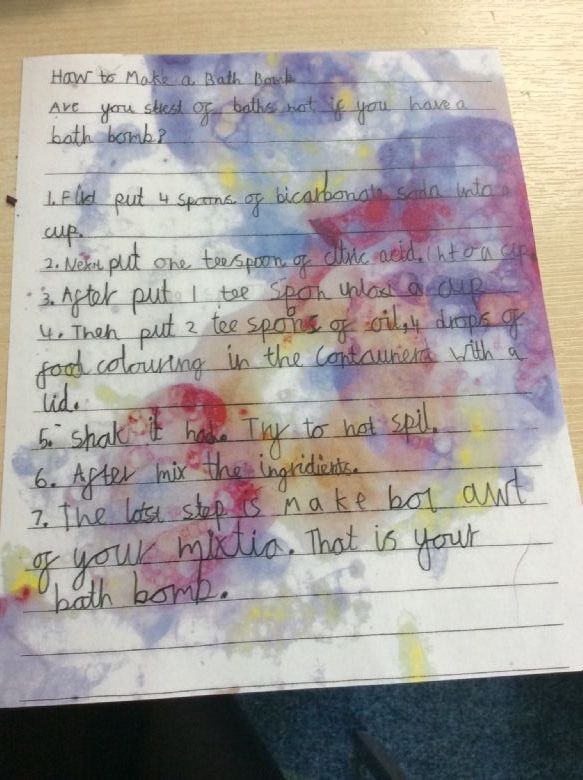 How to Make a Bath Bomb
Are you of baths not if you have a
bath bomb?
1. First put 4 spoons of bicarbonate soda into a
cup.
2. Next put one teespoon of citric acid. Into a cup
3. After put 1 tee spon a cup
4. Then put 2 tee spons of oil, 4 drops of
food colouring in the with a
lid.
5. Shak it had. Try to not spil.
6. After mix the ingridients.
7. The step is make bol awt
of your mixtio. That is your
bath bomb.